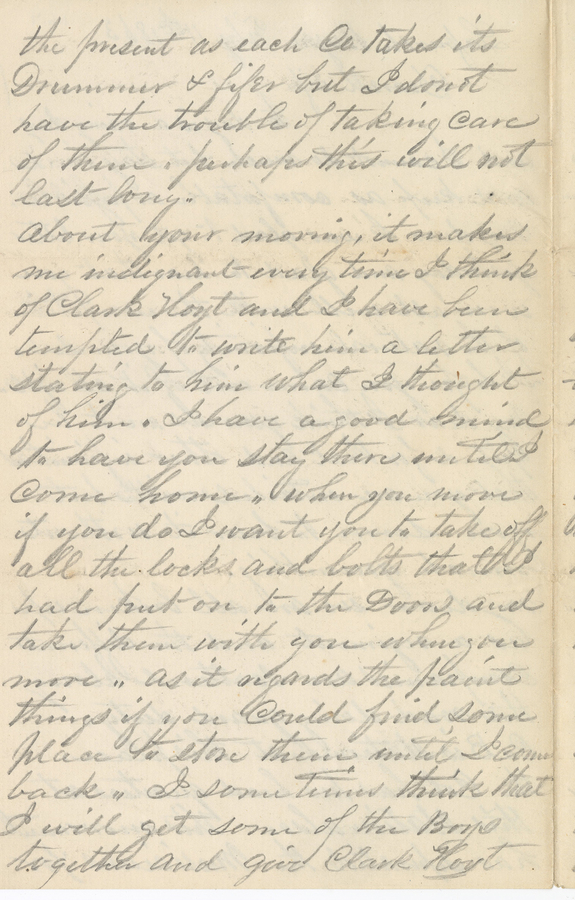 the present as each Co takes its
Drummer & fifer but I do not
have the trouble of taking care
of them. perhaps this will not
last long.
about your moving, it makes
me indignant every time I think
of Clark Hoyt and I have been
tempted to write him a letter
stating to him what I thought
of him. I have a good mind
to have you stay there until I
come home,, when you move
if you do I want you to take off
all the locks and bolts that I
had put on to the Doors and
take them with you when you
move,, as it regards the paint
things if you could find some
place to store them until I come
back,, I some times think that
I will get some of the Boys
together and give Clark Hoyt